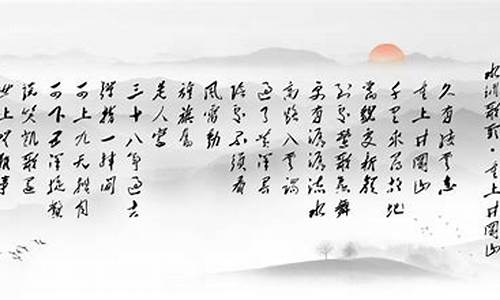 水调歌头·重上井冈山
久有凌云志
重上井冈山
千里来寻故地
旧貌变新颜
到处莺歌燕舞
更有潺潺流水
高路入云端
过了黄洋界
险处不须看
风雷动
旌旗奋
是人寰
三十八年过去
弹指一挥间
可上九天揽月
可下五洋捉鳖
谈笑凯歌还
世上无难事